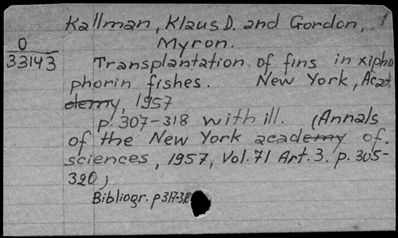 Kallman, Klaus D. and Gordon, 1
0 Myron.
33143 Transplantation of fins in xipho
phorin fishes. New York, Acad
demy, 1957
p. 307-318 with ill. (Annals
of the New York academy of
sciences, 1957, Vol. 71 Art. 3. p. 305-
320)
Bibliogr. p 317-318